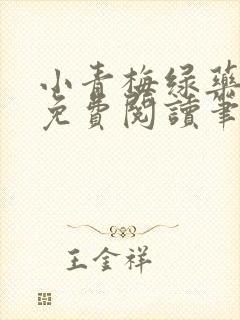 小青梅绿药
免費閱讀筆
王金祥